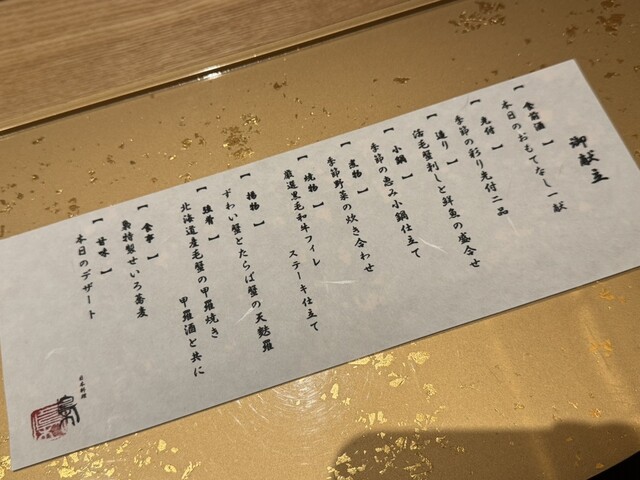 御献立
【食前酒】
本日のおもてなし一献
【先付】
季節の彩り先付二品
【造り】
活毛蟹刺しと鮮魚の盛合せ
【小鍋】
季節の恵み小鍋仕立て
【煮物】
季節野菜の炊き合わせ
【焼物】
厳選黒毛和牛フィレ
ステーキ仕立て
【揚物】
ずわい蟹とたらば蟹の天麩羅
【強肴】
北海道産毛蟹の甲羅焼き
甲羅酒と共に
【食事】
特製せいろ蕎麦
【甘味】
本日のデザート
日本料理